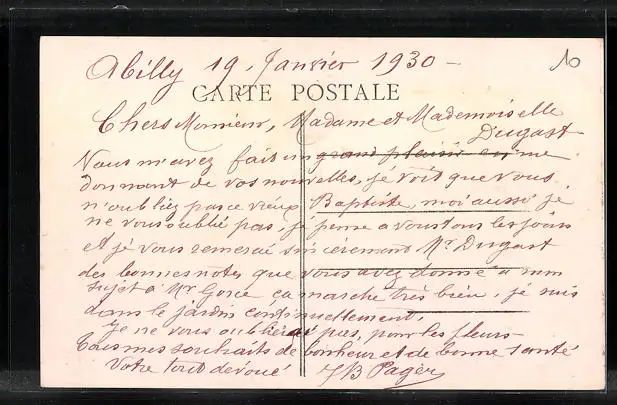 Abilly 19, Janvier 1930 -
10
CARTE POSTALE
Chers Monsieur, Madame et Mademoiselle
Dugast
Vous m'avez fait un grand plaisir en me
donnant de vos nouvelles, je voit que vous
n'oubliez pas ce vieux Baptiste, moi aussi je
ne vous oublié pas, je pense a vous tous les jours
et je vous remercié sincèrement Mr Dugast
des bonnes notes que vous avez donné a mon
sujet a Mr ça marche très bien, je suis
dans le jardin continuellement,
Je ne vous oublierai pas, pour les fleurs -
Tous mes souhaits de bonheur et de bonne santé
Votre tout dévoué JB Pager